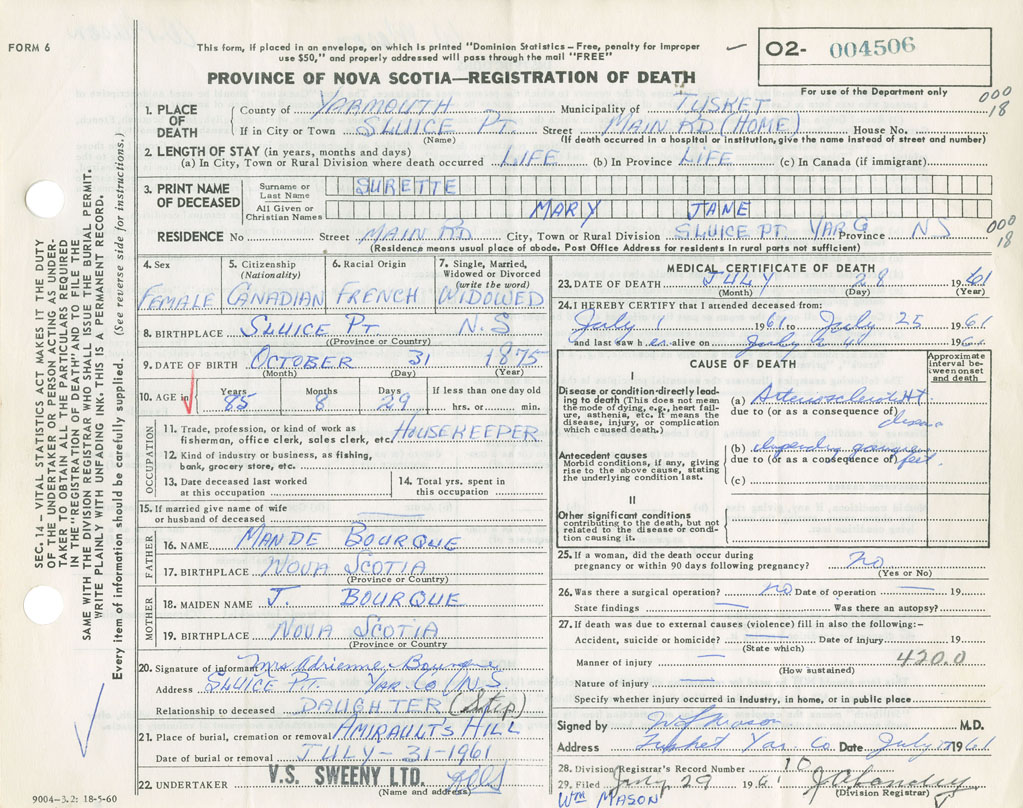 FORM 6
This form, if placed in an envelope, on which is printed "Dominion Statistics – Free, penalty for improper
use $50," and properly addressed will pass through the mail "FREE"
O2- 004506
For use of the Department only
PROVINCE OF NOVA SCOTIA—REGISTRATION OF DEATH
000
18
1. PLACE OF DEATH
County of YARMOUTH Municipality of TUSKET
If in City or Town SLUICE PT. Street MAIN RD (HOME) House No.
(Name) (If death occurred in a hospital or institution, give the name instead of street and number)
2. LENGTH OF STAY (in years, months and days)
(a) In City, Town or Rural Division where death occurred LIFE (b) In Province LIFE (c) In Canada (if immigrant)
3. PRINT NAME OF DECEASED
Surname or Last Name SURETTE
All Given or Christian Names MARY JANE
RESIDENCE No Street MAIN RD City, Town or Rural Division SLUICE PT YAR Province NS
000
18
(Residence means usual place of abode. Post Office Address for residents in rural parts not sufficient)
4. Sex 5. Citizenship (Nationality) 6. Racial Origin 7. Single, Married, Widowed or Divorced (write the word)
FEMALE CANADIAN FRENCH WIDOWED
8. BIRTHPLACE SLUICE PT N.S
(Province or Country)
9. DATE OF BIRTH OCTOBER 31 1875
(Month) (Day) (Year)
10. AGE in Years Months Days If less than one day old
85 8 29 hrs. or min.
OCCUPATION
11. Trade, profession, or kind of work as
fisherman, office clerk, sales clerk, etc. HOUSEKEEPER
12. Kind of industry or business, as fishing,
bank, grocery store, etc.
13. Date deceased last worked
at this occupation
14. Total yrs. spent in
this occupation
15. If married give name of wife
or husband of deceased
FATHER
16. NAME MANDE BOURQUE
17. BIRTHPLACE NOVA SCOTIA
(Province or Country)
MOTHER
18. MAIDEN NAME J. BOURQUE
19. BIRTHPLACE NOVA SCOTIA
(Province or Country)
20. Signature of informant Mrs Adrienne Bourque
Address SLUICE PT. YAR Co N.S.
Relationship to deceased DAUGHTER (Step)
21. Place of burial, cremation or removal AMIRAULT'S HILL
Date of burial or removal JULY-31-1961
22. UNDERTAKER V.S. SWEENY LTD.
(Name and address)
9004–3.2: 18-5-60
MEDICAL CERTIFICATE OF DEATH
23. DATE OF DEATH JULY 28 1961
(Month) (Day) (Year)
24. I HEREBY CERTIFY that I attended deceased from:
July 1 1961 to July 25 1961
and last saw her alive on July 24 1961
CAUSE OF DEATH
Approximate interval between onset and death
I
Disease or condition directly leading to death (This does not mean the mode of dying, e.g., heart failure, asthenia, etc. It means the disease, injury, or complication which caused death.)
(a) Arteriosclerotic Ht
due to (or as a consequence of) disease
Antecedent causes
Morbid conditions, if any, giving rise to the above cause, stating the underlying condition last.
(b) gangrene
due to (or as a consequence of) feet
(c)
II
Other significant conditions
contributing to the death, but not related to the disease or condition causing it.
25. If a woman, did the death occur during
pregnancy or within 90 days following pregnancy? No
(Yes or No)
26. Was there a surgical operation? no Date of operation 19
State findings Was there an autopsy?
27. If death was due to external causes (violence) fill in also the following:–
Accident, suicide or homicide? Date of injury 19
(State which)
Manner of injury 420.0
(How sustained)
Nature of injury
Specify whether injury occurred in industry, in home, or in public place
Signed by Mason M.D.
Address Tusket Yar. Co. Date July 1961
28. Division Registrar's Record Number 10
29. Filed July 29 1961
(Division Registrar)
Wm MASON
SEC. 14 – VITAL STATISTICS ACT MAKES IT THE DUTY
OF THE UNDERTAKER OR PERSON ACTING AS UNDER-
TAKER TO OBTAIN ALL THE PARTICULARS REQUIRED
IN THE "REGISTRATION OF DEATH" AND TO FILE THE
SAME WITH THE DIVISION REGISTRAR WHO SHALL ISSUE THE BURIAL PERMIT.
WRITE PLAINLY WITH UNFADING INK. THIS IS A PERMANENT RECORD.
Every item of information should be carefully supplied. (See reverse side for instructions.)